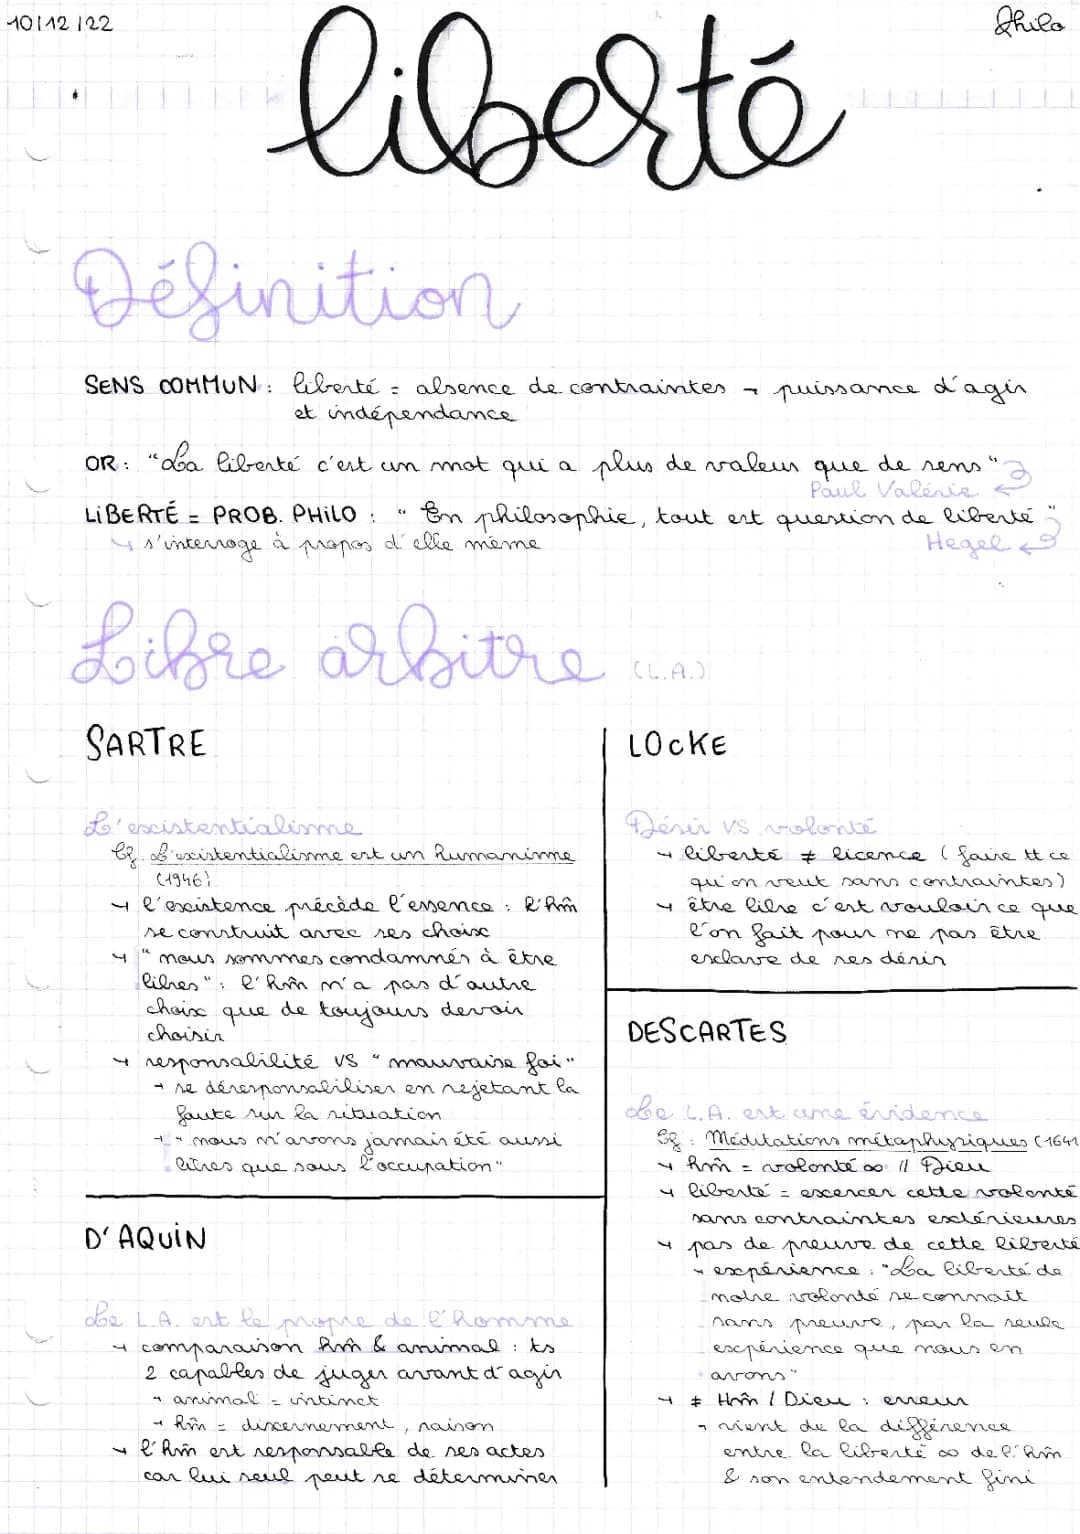 10/12/22
Philo
liberté
Définition
SENS COMMUN : liberté = absence de contraintes → puissance d'agir
et indépendance
OR : "La liberté c'est un mot qui a plus de valeur que de sens"
Paul Valérie
LIBERTÉ = PROB. PHILO : "En philosophie, tout est question de liberté"
↳ s'interroge à propos d'elle même
Hegel
Libre arbitre (L.A.)
SARTRE
L'existentialisme
Cf. L'existentialisme est un humanisme
(1946)
→ l'existence précède l'essence : l'hm̂
se construit avec ses choix
→ "nous sommes condamnés à être
libres" : l'hm̂ n'a pas d'autre
choix que de toujours devoir
choisir
→ responsabilité VS "mauvaise foi"
→ se déresponsabiliser en rejetant la
faute sur la situation
→ "nous n'avons jamais été aussi
libres que sous l'occupation"
D'AQUIN
Le L.A. est le propre de l'homme
→ comparaison hm̂ & animal : ts
2 capables de juger avant d'agir
→ animal = instinct
→ hm̂ = discernement, raison
→ l'hm̂ est responsable de ses actes
car lui seul peut se déterminer
LOCKE
Désir VS volonté
→ liberté ≠ licence (faire tt ce
qu'on veut sans contraintes)
→ être libre c'est vouloir ce que
l'on fait pour ne pas être
esclave de ses désirs
DESCARTES
Le L.A. est une évidence
Cf : Méditations métaphysiques (1641
→ hm̂ = volonté ∞ // Dieu
→ liberté = exercer cette volonté
sans contraintes extérieures
→ pas de preuve de cette liberté
→ expérience : "La liberté de
notre volonté se connaît
sans preuve, par la seule
expérience que nous en
avons"
→ ≠ Hm̂ / Dieu : erreur
→ vient de la différence
entre la liberté ∞ de l'hm̂
& son entendement fini